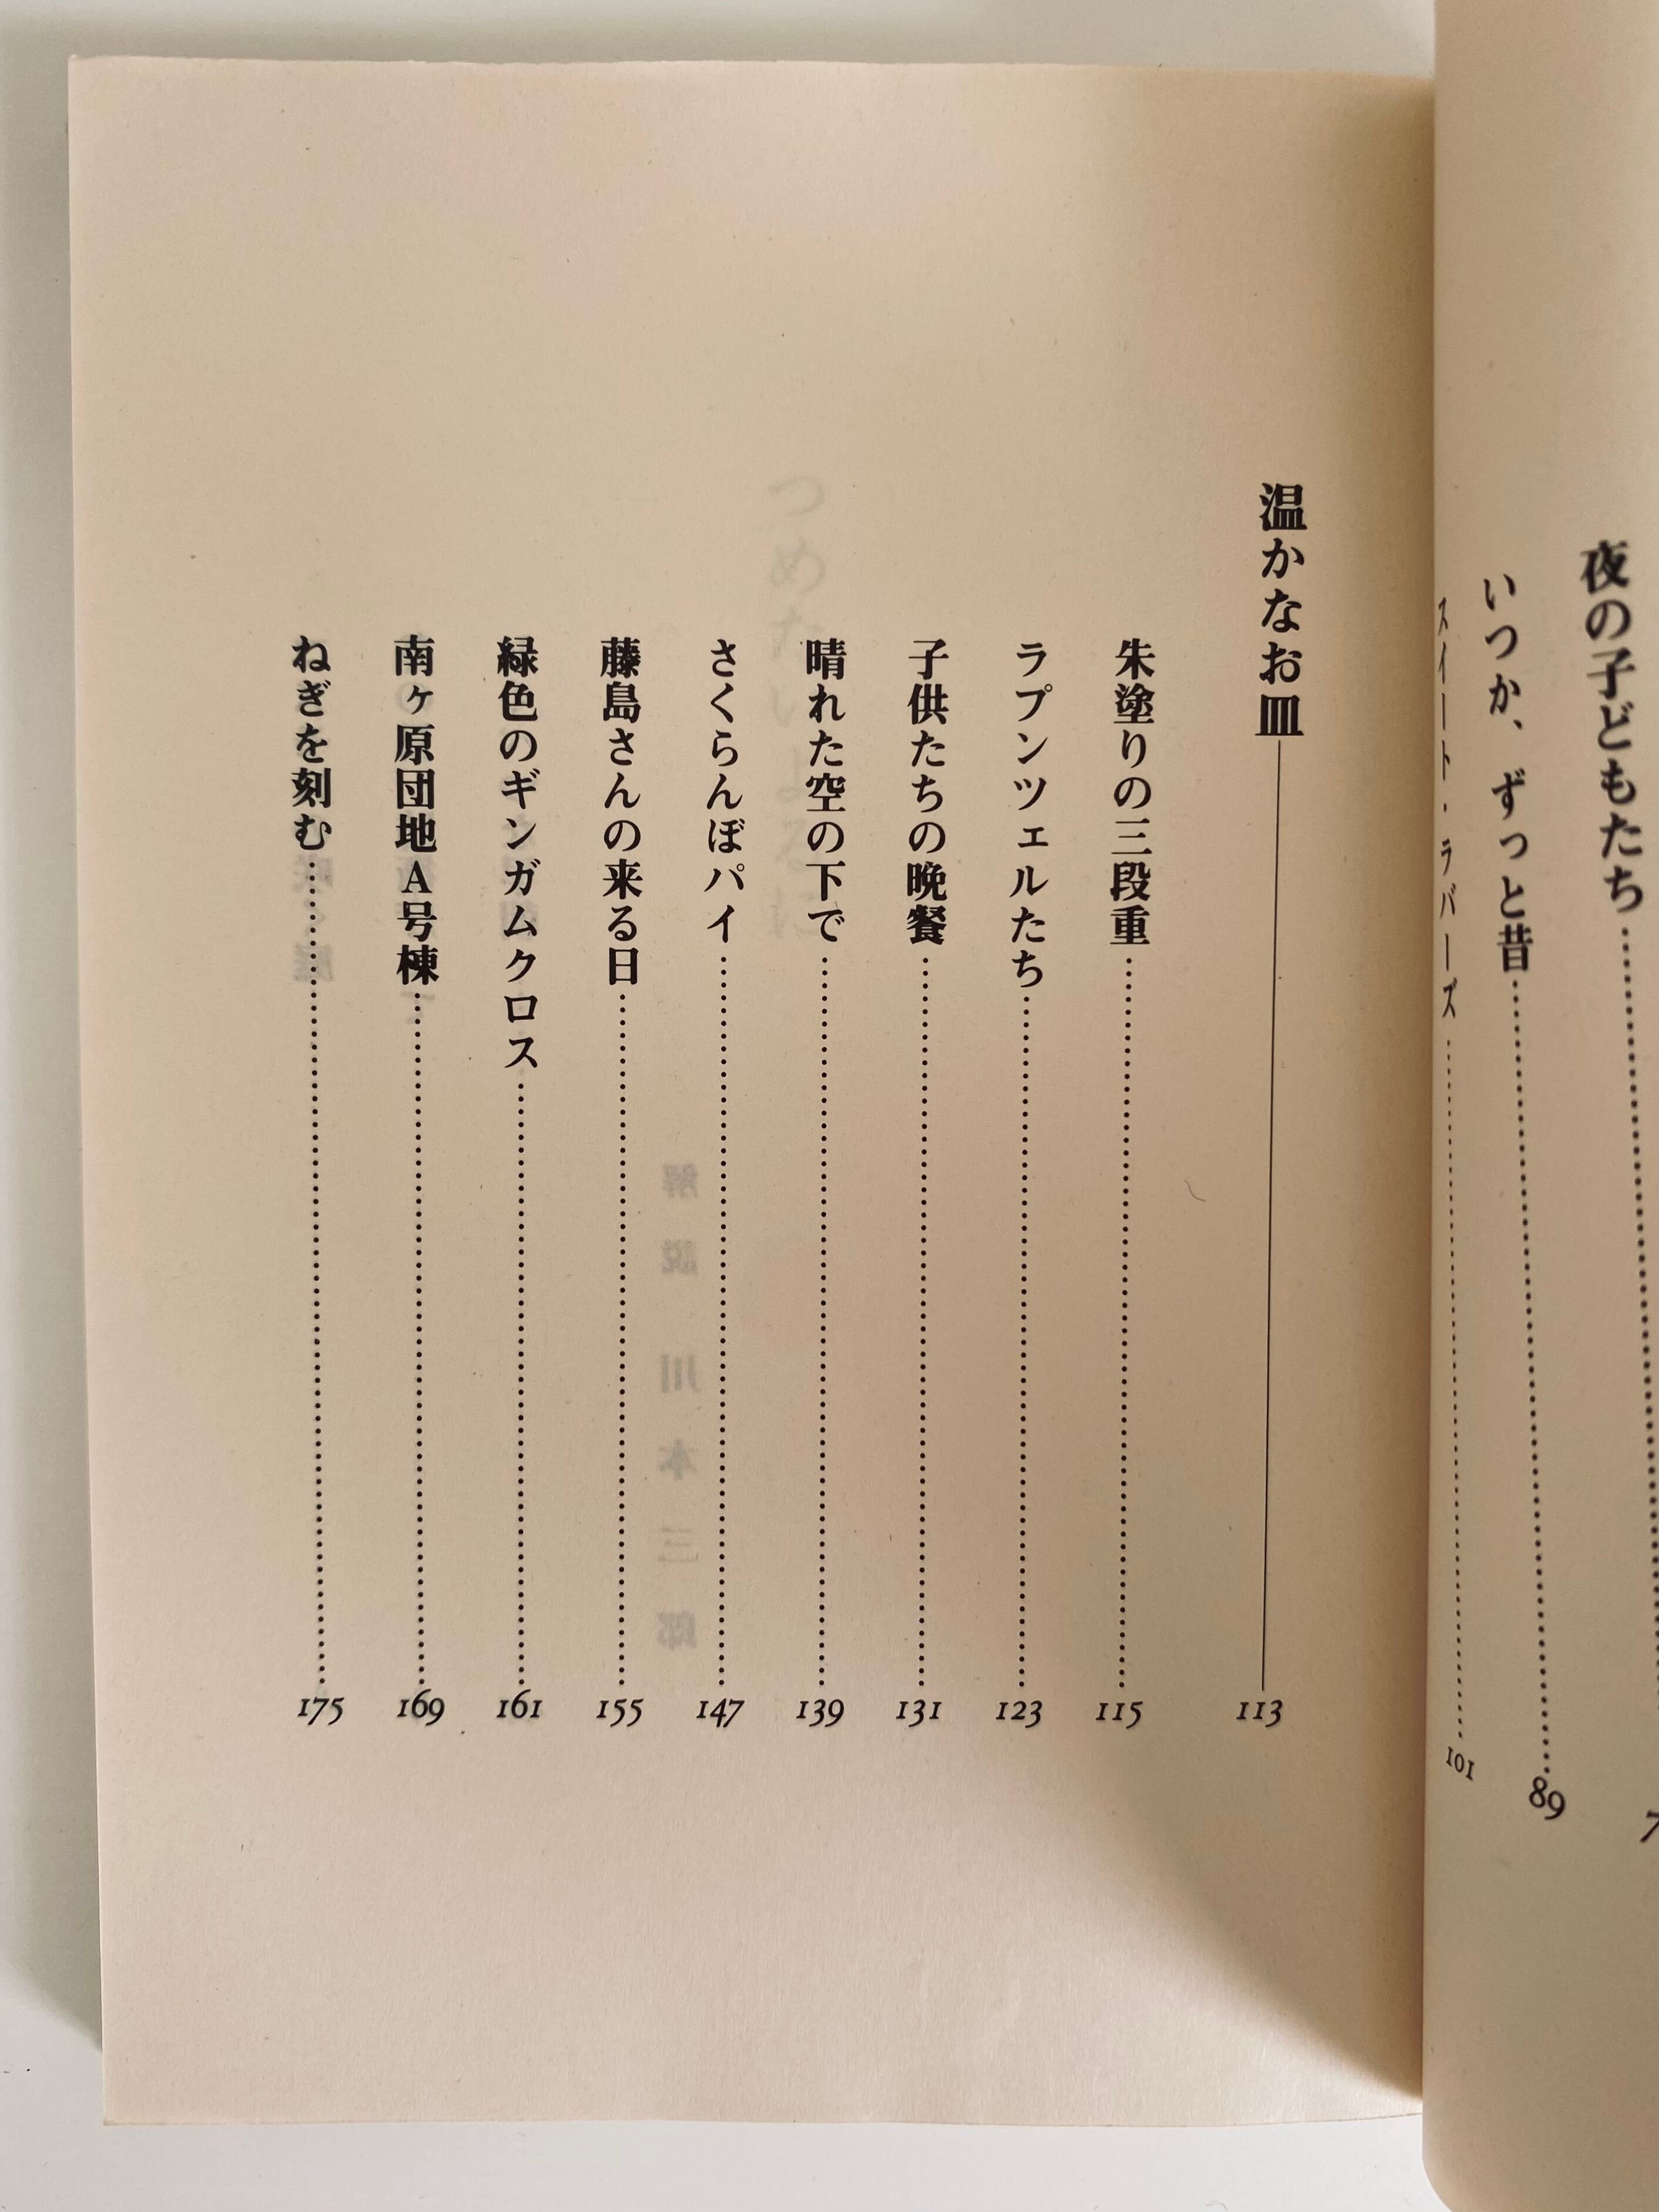 夜の子どもたち……7
いつか、ずっと昔……89
スイート・ラバーズ……101
温かなお皿 113
朱塗りの三段重……115
ラプンツェルたち……123
子供たちの晩餐……131
晴れた空の下で……139
さくらんぼパイ……147
藤島さんの来る日……155
緑色のギンガムクロス……161
南ヶ原団地A号棟……169
ねぎを刻む……175
つめたいよるに
解説 川本三郎